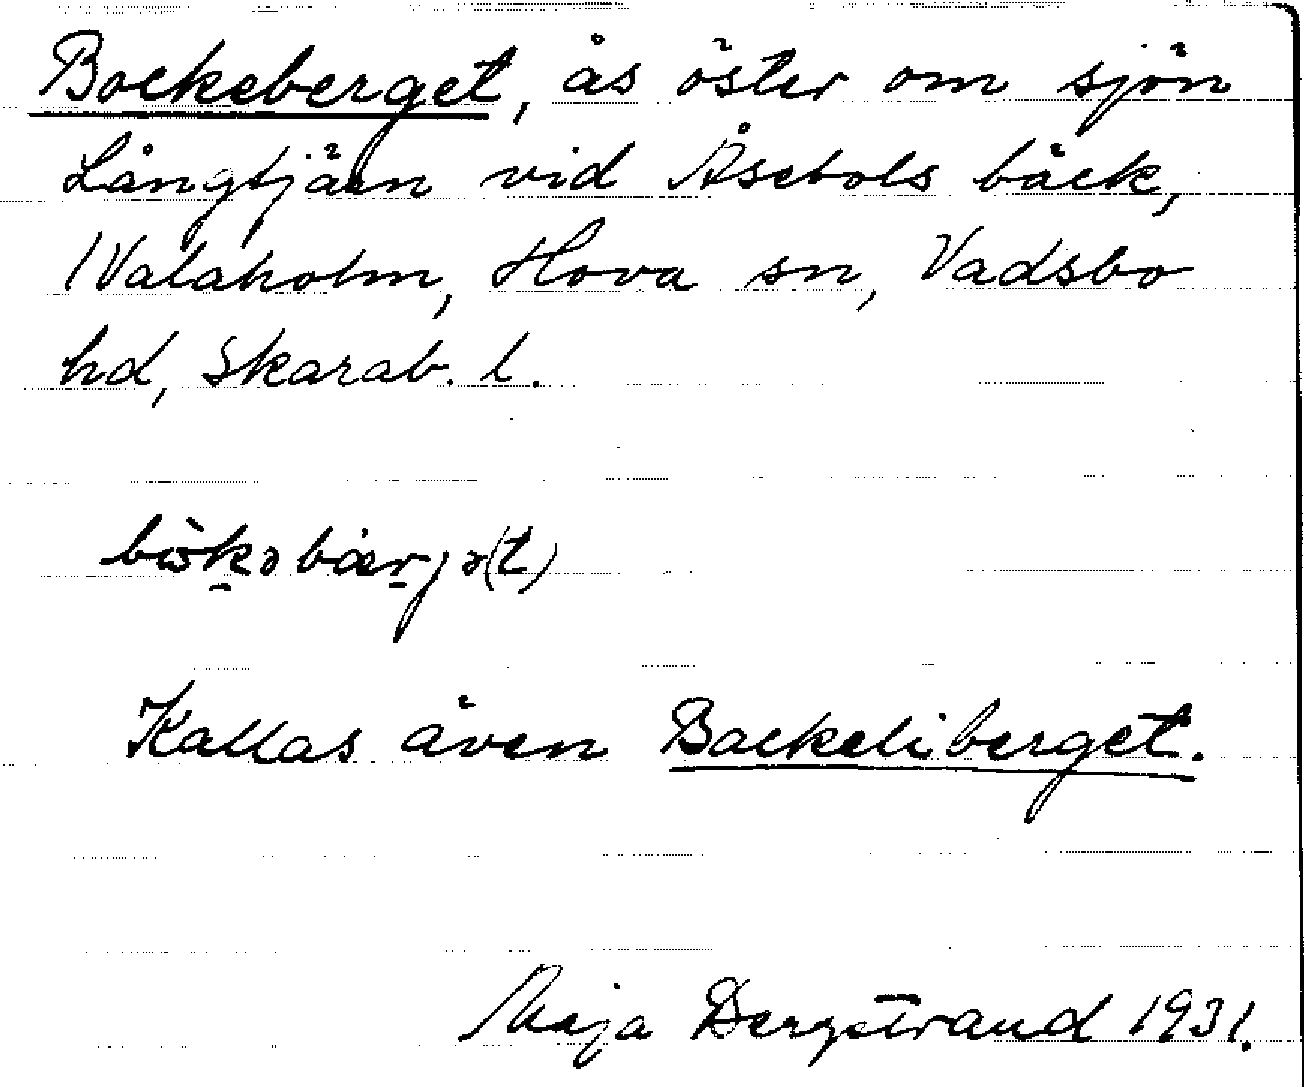 Bockeberget, ås öster om sjön
Långtjärn vid Åsebols bäck,
Valaholm, Hova sn, Vadsbo
hd, Skarab. l.
Kallas även Backeliberget.
Maja Bergstrand 1931.